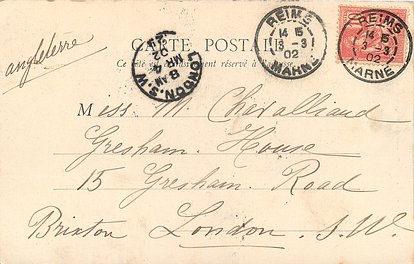 CARTE POSTALE
Ce côté est exclusivement réservé à l'adresse
angleterre
REIMS
14 15
3 - 3
02
MARNE
REIMS
14 15
3 - 3
02
MARNE
LONDON. S.W.
8 AM
MR 4
02
Mess. M. Chevalliaud
Gresham House
15 Gresham Road
Brixton London. S.W.